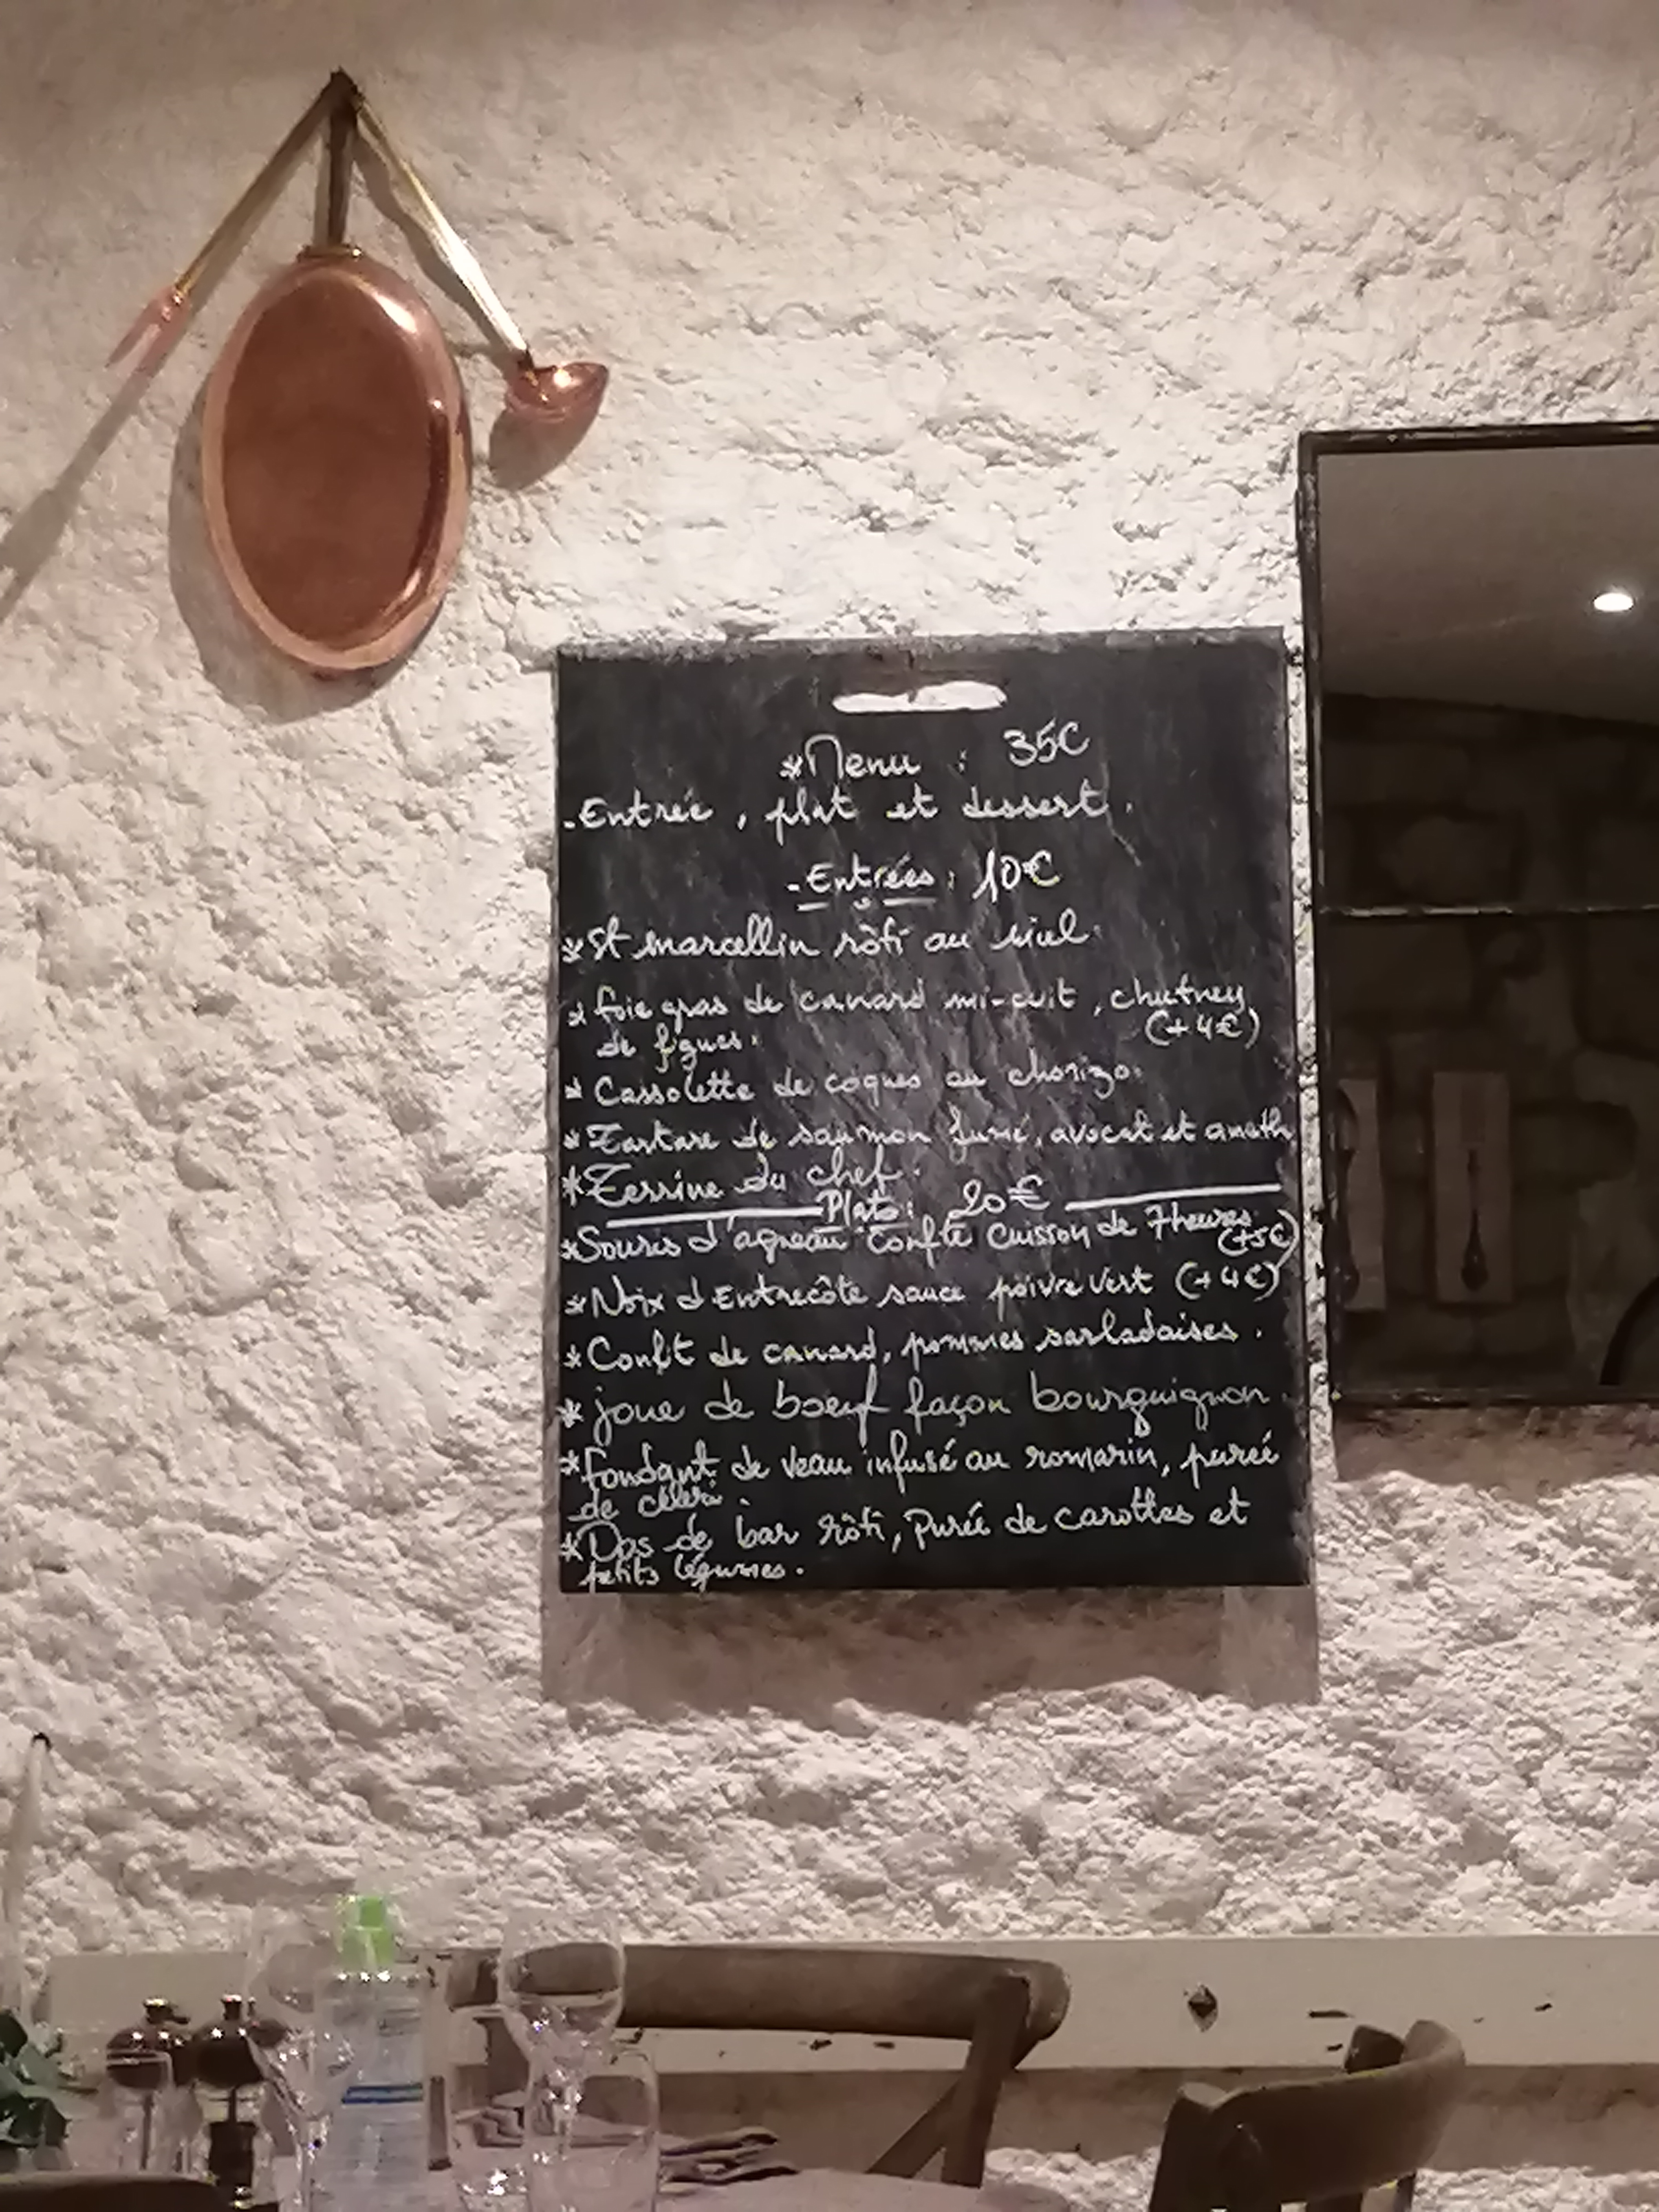 *Menu : 35€
-Entrée, plat et dessert.
-Entrées : 10€
*St marcellin rôti au miel.
*foie gras de canard mi-cuit, chutney
de figues. (+4€)
*Cassolette de coques au chorizo.
*Tartare de saumon fumé, avocat et aneth
*Terrine du chef.
Plats : 20€
*Souris d'agneau confite cuisson de 7heures
(+5€)
*Noix d'Entrecôte sauce poivre vert (+4€)
*Confit de canard, pommes sarladaises.
*joue de boeuf façon bourguignon.
*fondant de veau infusé au romarin, purée
de céleri.
*Dos de bar rôti, Purée de carottes et
petits légumes.